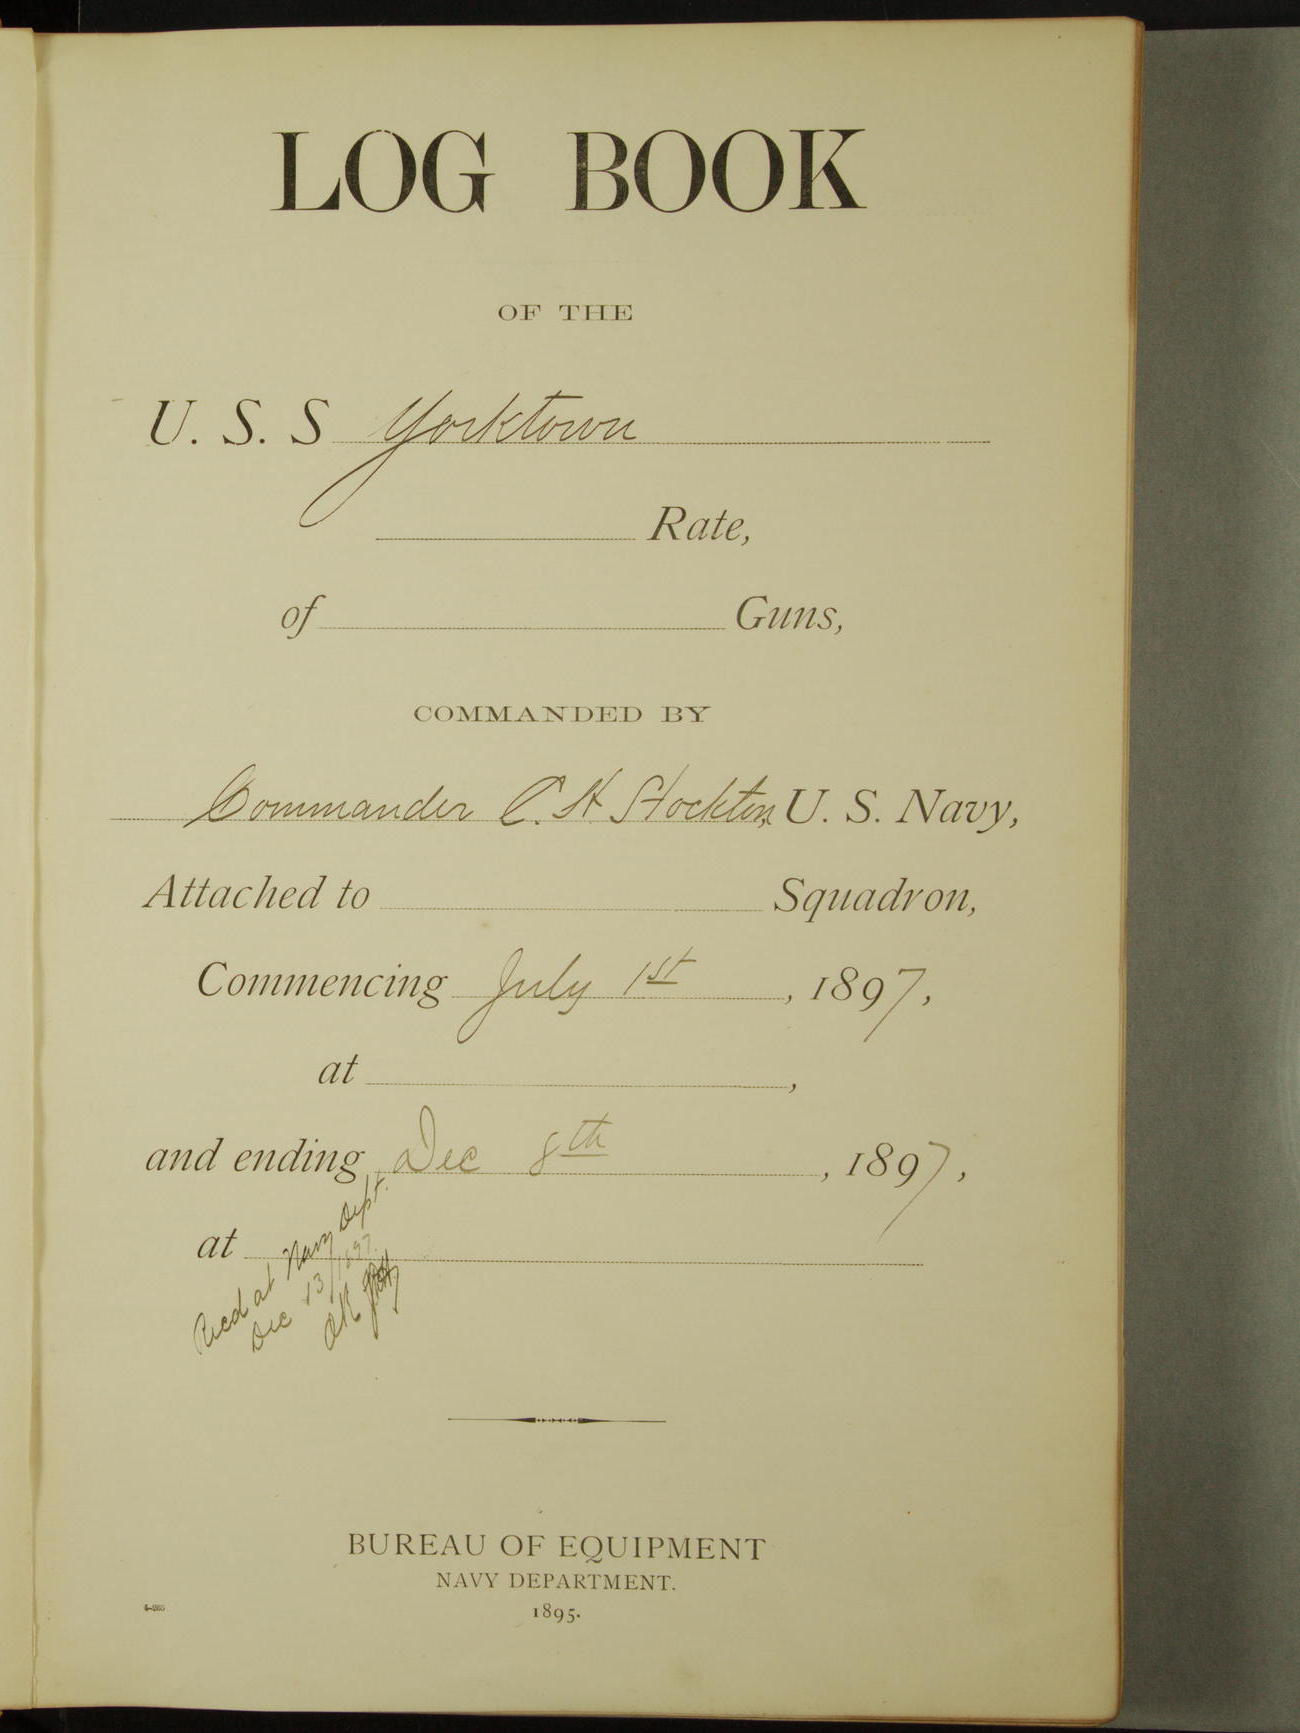 LOG BOOK
OF THE
U. S. S Yorktown
Rate,
of Guns,
COMMANDED BY
Commander C. H. Stockton, U. S. Navy,
Attached to Squadron,
Commencing July 1st, 1897,
at ,
and ending Dec 8th, 1897,
at
Recd at Navy Dept.
Dec 13/1897.
OK
BUREAU OF EQUIPMENT
NAVY DEPARTMENT.
1895.